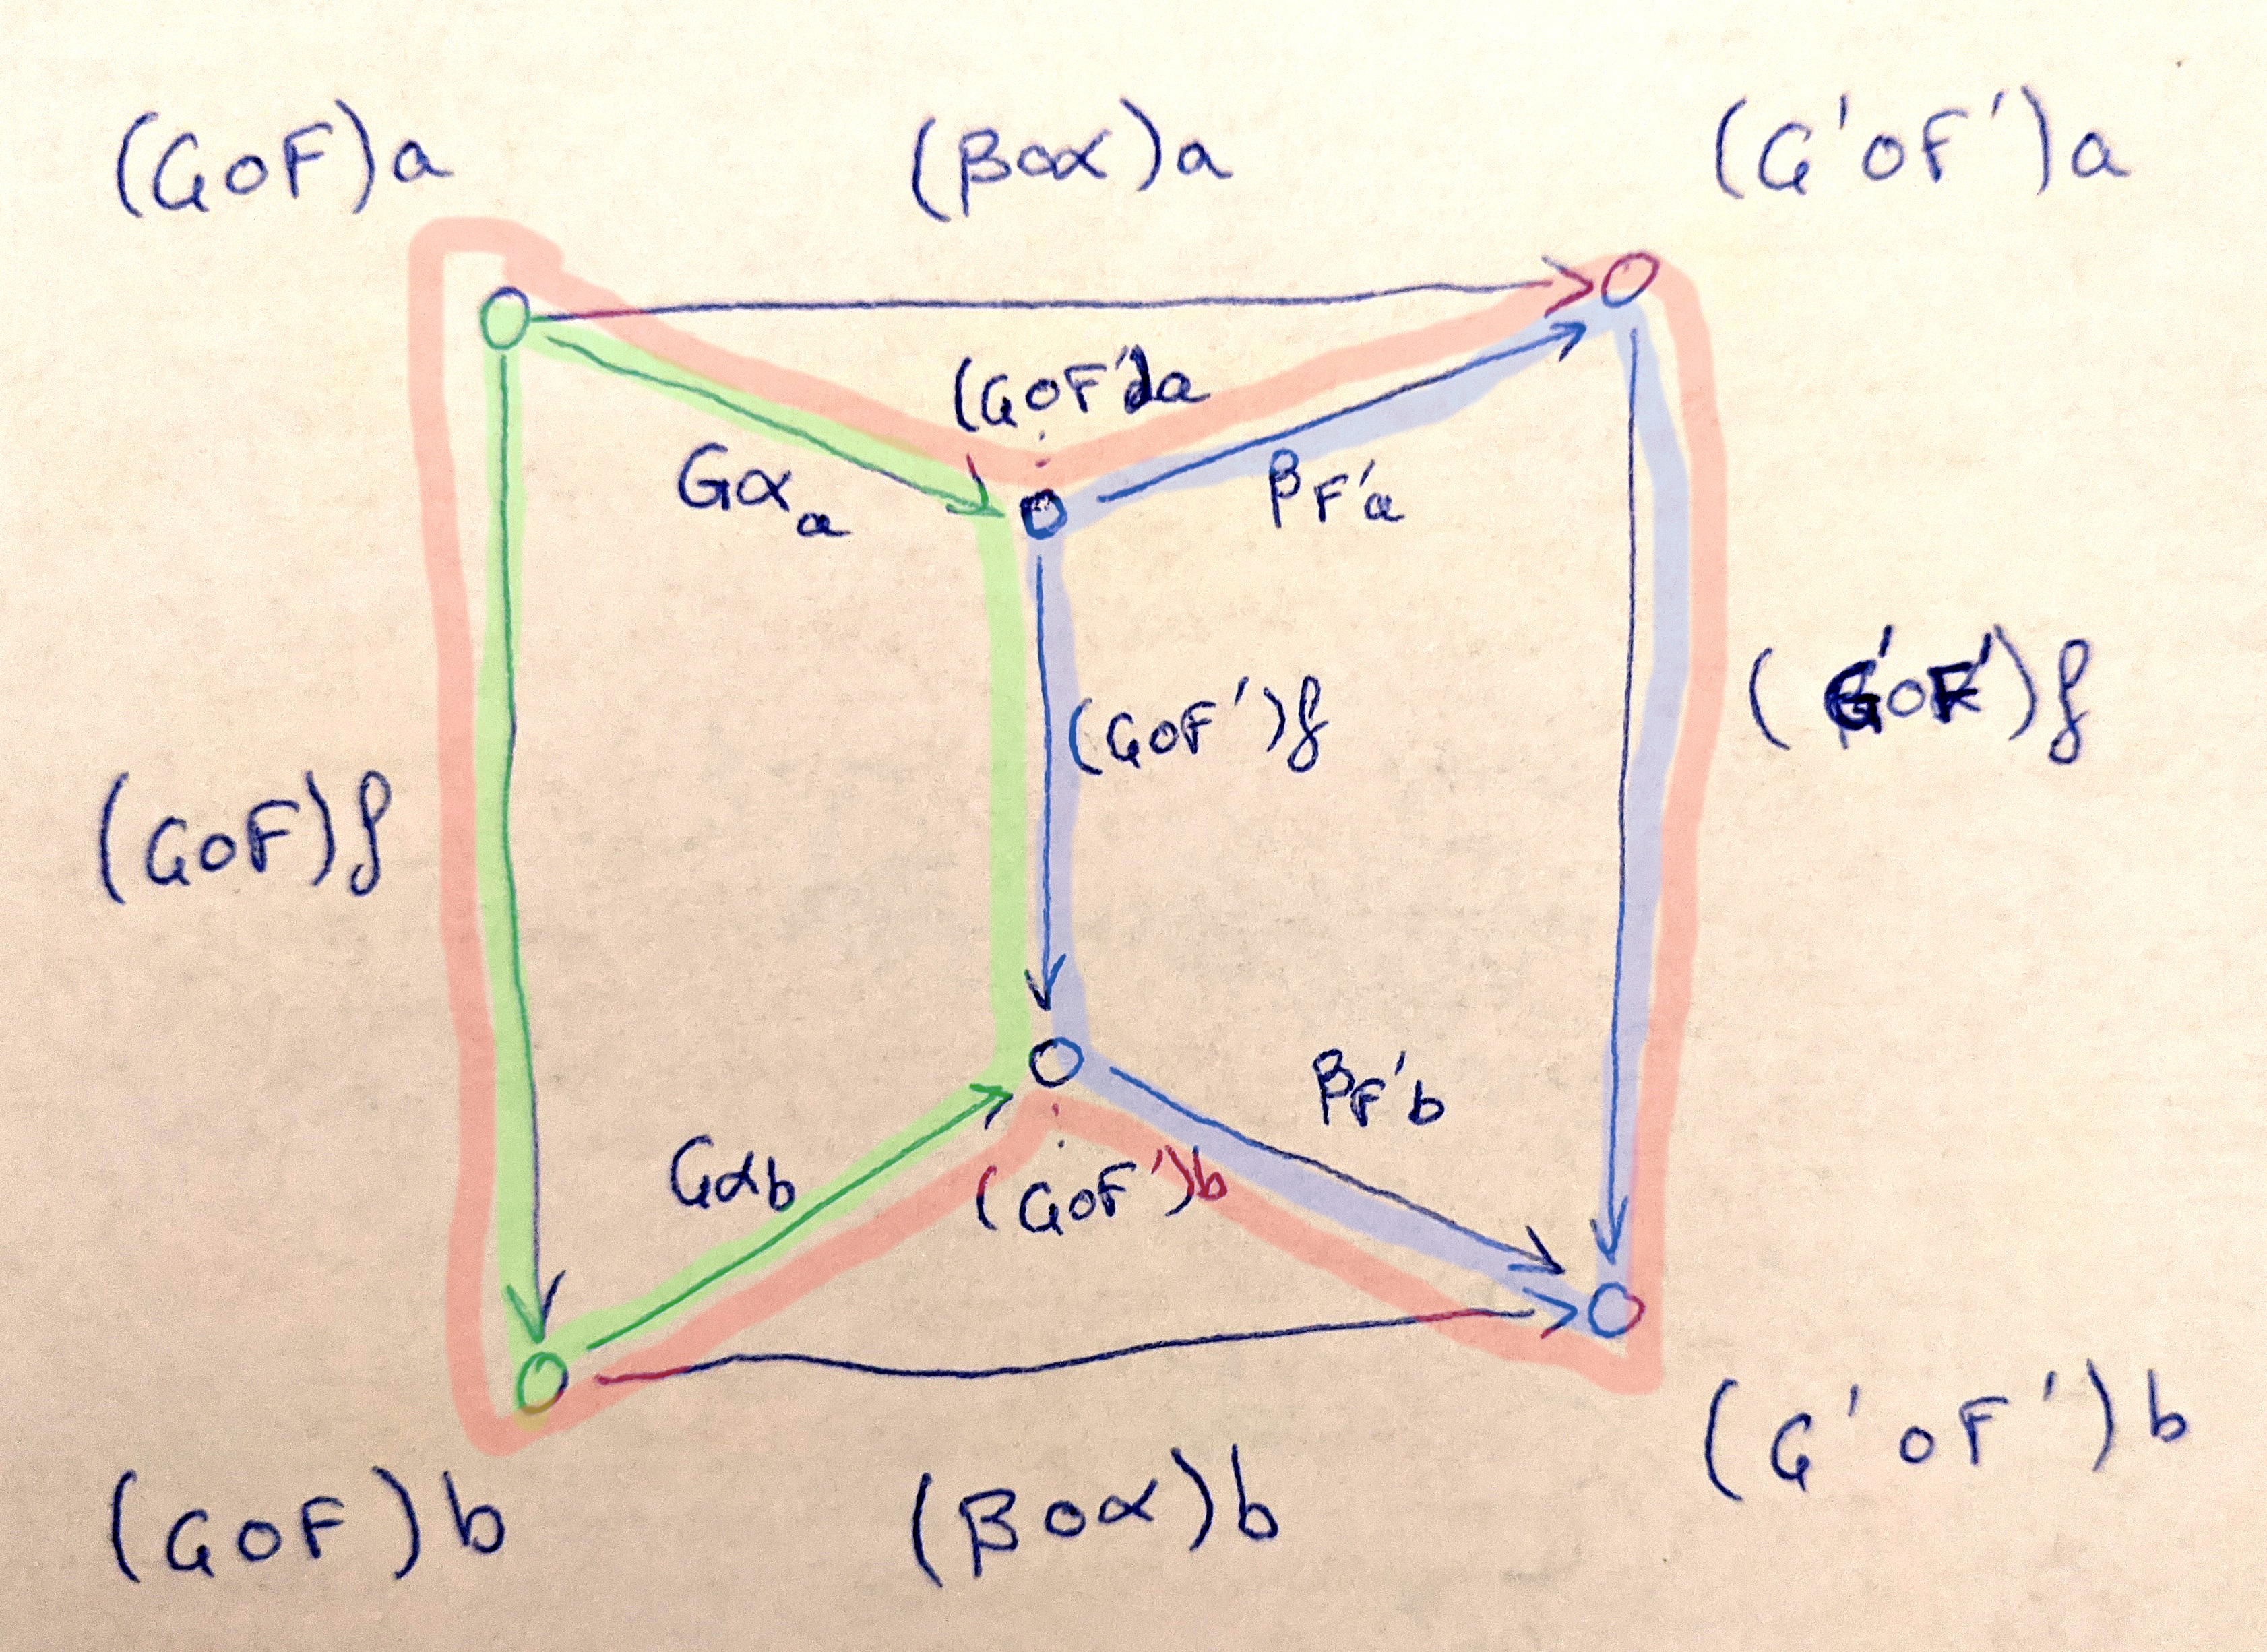 (G∘F)a (β∘α)a (G'∘F')a
(G∘F')a
Gα_a β_F'a
(G∘F)f (G∘F')f (G'∘F')f
Gα_b β_F'b
(G∘F')b
(G∘F)b (β∘α)b (G'∘F')b